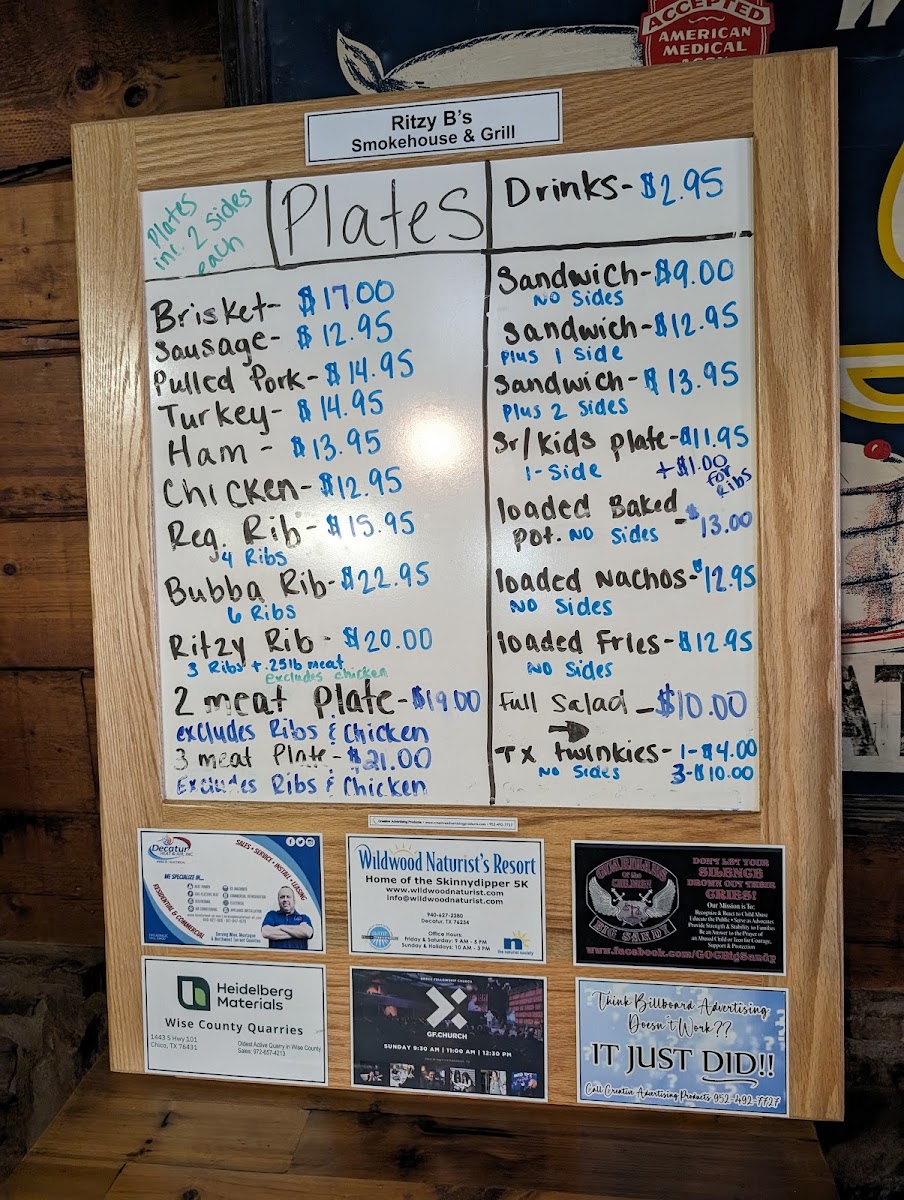 ACCEPTED
AMERICAN
MEDICAL
Ritzy B's
Smokehouse & Grill
Plates
inc. 2 sides
each
Plates
Brisket- $17.00
Sausage- $12.95
Pulled Pork- $14.95
Turkey- $14.95
Ham - $13.95
Chicken- $12.95
Reg. Rib- $15.95
4 Ribs
Bubba Rib- $22.95
6 Ribs
Ritzy Rib - $20.00
3 Ribs + .25lb meat
excludes chicken
2 meat plate-$19.00
excludes Ribs & Chicken
3 meat Plate - $21.00
Excludes Ribs & Chicken
Drinks- $2.95
Sandwich-$9.00
NO Sides
Sandwich-$12.95
plus 1 side
Sandwich-$13.95
Plus 2 sides
Sr/kids plate-$11.95
1-Side +$1.00
for
Ribs
loaded Baked
pot. NO Sides - $13.00
loaded Nachos-$12.95
NO Sides
loaded Fries-$12.95
NO Sides
Full Salad - $10.00
TX twinkies- 1-$4.00
NO Sides 3-$10.00
Decatur
SALES • SERVICE • INSTALL • LEASING
WE SPECIALIZE IN...
RESIDENTIAL & COMMERCIAL
Wildwood Naturist's Resort
Home of the Skinnydipper 5K
www.wildwoodnaturist.com
info@wildwoodnaturist.com
940-627-2280
Decatur, TX 76234
Office Hours:
Friday & Saturday: 9 AM - 6 PM
Sunday & Holidays: 10 AM - 3 PM
GUARDIANS
of the
CHILDREN
BIG SANDY
DON'T LET YOUR
SILENCE
DROWN OUT THEIR
CRIES!
Our Mission is To:
Recognize & React to Child Abuse
Educate the Public • Serve as Advocates
Provide Strength & Stability to Families
Be an Answer to the Prayer of
an Abused Child or Teen for Courage,
Support & Protection
www.facebook.com/GOCBigSandy
Heidelberg
Materials
Wise County Quarries
1443 S Hwy 101
Chico, TX 76431
Oldest Active Quarry in Wise County
Sales: 972-657-4213
GRACE FELLOWSHIP CHURCH
GF.CHURCH
SUNDAY 9:30 AM | 11:00 AM | 12:30 PM
Think Billboard Advertising
Doesn't Work??
IT JUST DID!!
Call Creative Advertising Products 952-492-7727